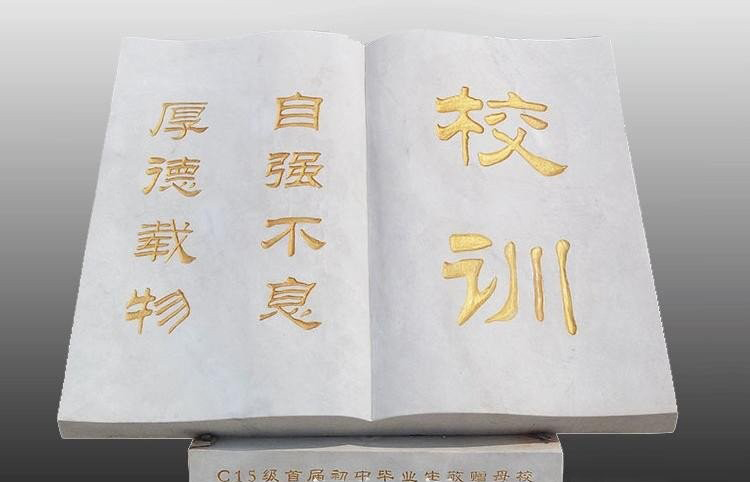 校训
自强不息
厚德载物
C15级首届初中毕业生敬赠母校